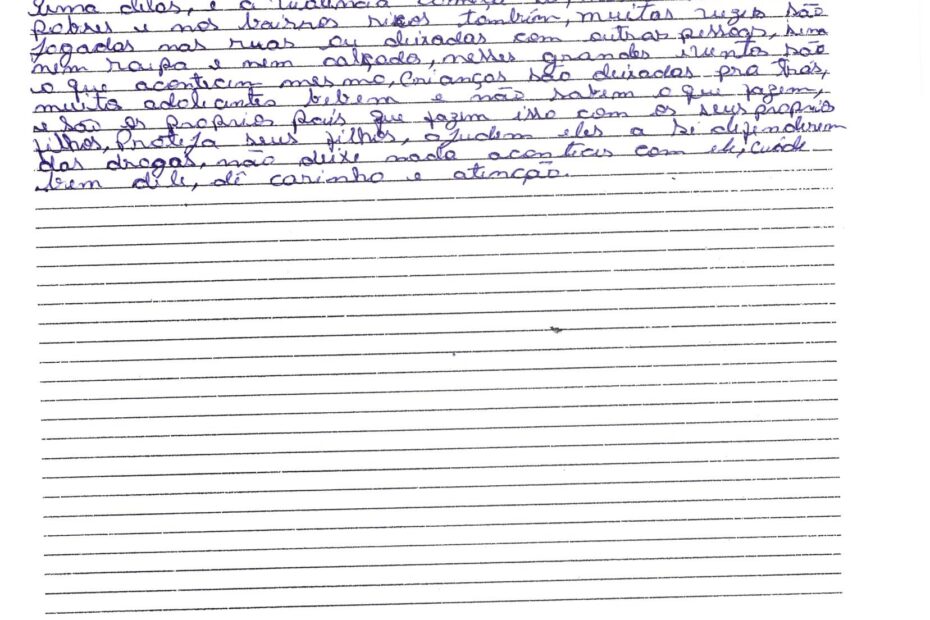 uma delas, e a
pobres e nos bairros ricos também, muitas vezes são
jogadas nas ruas ou deixadas com outras pessoas, sem
nem roupa e nem calçado, nesses grandes eventos são
o que acontecem mesmo, Crianças são deixadas pra trás,
muito adolecantes bebem e não sabem o que fazem,
e são os proprios pais que fazem isso com os seus proprios
filhos, Proteja seus filhos, ajudem eles a si defenderem
das drogas, não deixe nada acontecer com ele, cuide
bem dele, dê carinho e atenção.